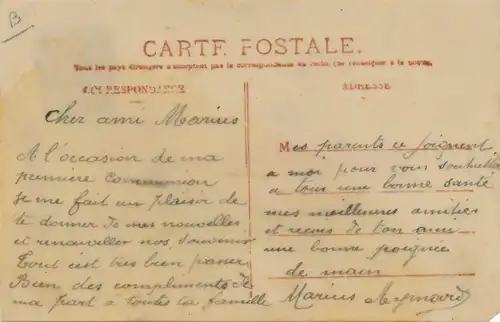 B
CARTE POSTALE.
Tous les pays étrangers n'acceptent pas la correspondance au recto (se renseigner à la poste)
CORRESPONDANCE
Cher ami Marius
A l'occasion de ma
première Communion
je me fait un plaisir de
te donner de mes nouvelles
et renouveller nos souvenir
Tout c'est très bien passer
Bien des compliments de
ma part à toutes ta famille
ADRESSE
Mes parents ce joignent
a moi pour vous souhaiter
a tous une bonne santé
mes meilleures amitiés
et recois de ton ami
une bonne poignée
de main
Marius